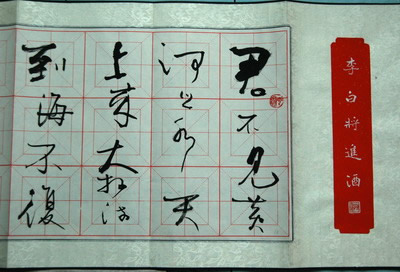 李白將進酒
君不見黃
河之水天
上來奔流
到海不復